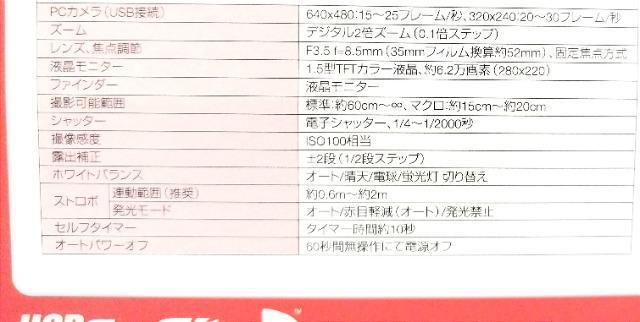 PCカメラ(USB接続) 640x480:15〜25フレーム/秒、320x240:20〜30フレーム/秒
ズーム デジタル2倍ズーム(0.1倍ステップ)
レンズ、焦点調節 F3.5 f=8.5mm(35mmフィルム換算約52mm)、固定焦点方式
液晶モニター 1.5型TFTカラー液晶、約6.2万画素(280x220)
ファインダー 液晶モニター
撮影可能範囲 標準:約60cm〜∞、マクロ:約15cm〜約20cm
シャッター 電子シャッター、1/4〜1/2000秒
撮像感度 ISO100相当
露出補正 ±2段(1/2段ステップ)
ホワイトバランス オート/晴天/電球/蛍光灯 切り替え
ストロボ 連動範囲(推奨) 約0.6m〜約2m
発光モード オート/赤目軽減(オート)/発光禁止
セルフタイマー タイマー時間約10秒
オートパワーオフ 60秒間無操作にて電源オフ